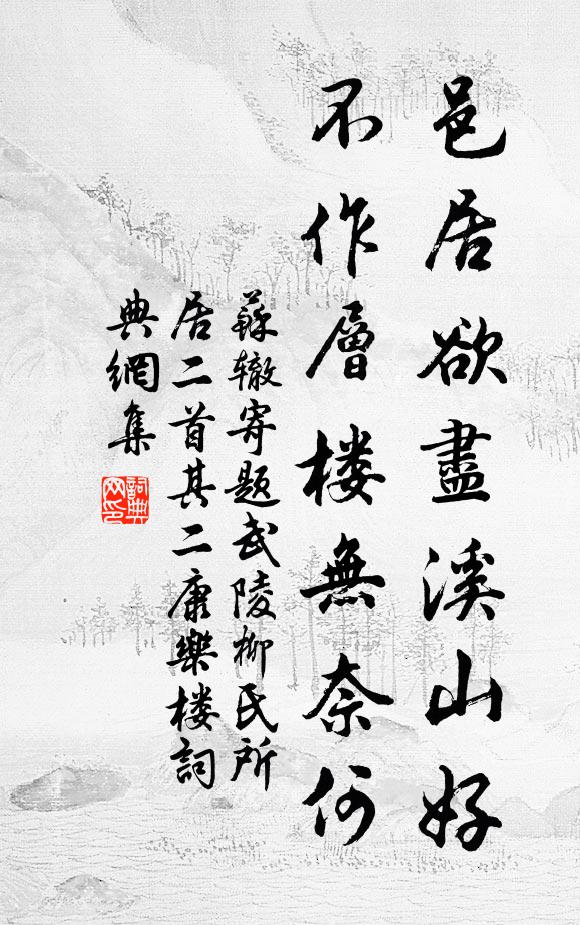 邑居欲盡溪山好
不作層楼無奈何
蘇辙寄题武陵柳氏所
居二首其二康樂楼詞
典網集
詞典
网印